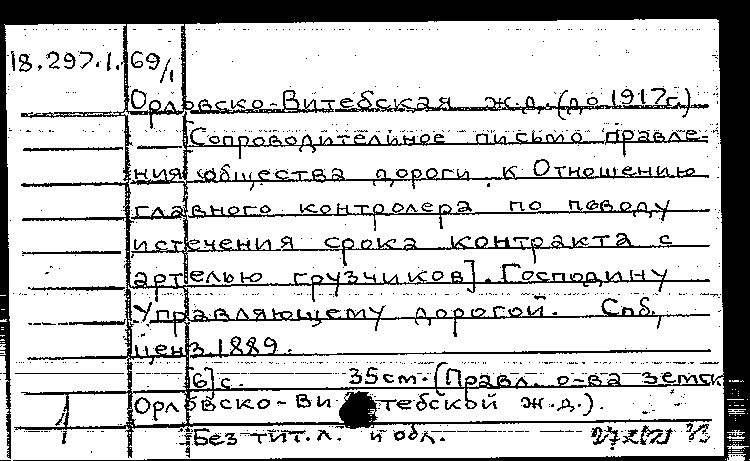 18.297.1.69/1
Орловско-Витебская ж.д. (до 1917г.)
Сопроводительное письмо правле-
ния общества дороги к Отношению
главного контролера по поводу
истечения срока контракта с
артелью грузчиков]. Господину
Управляющему дорогой. Спб,
ценз. 1889.
6] с. 35 см. (Правл. о-ва земск
Орловско-Витебской ж.д.).
1 Без тит. л. и обл.